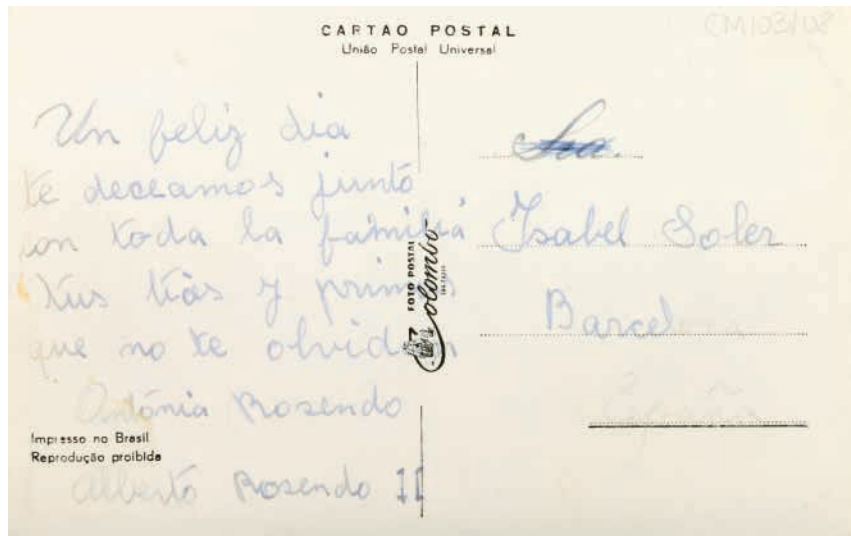 CARTAO POSTAL
União Postal Universal
CM103/08
Un feliz dia
te deceamos junto
con toda la familia
tus tias y primos
que no te olvidan
Antónia Rosendo
Alberto Rosendo 11
Impresso no Brasil
Reprodução proibida
FOTO POSTAL
Colombo
Sra.
Isabel Soler
Barcelona
España